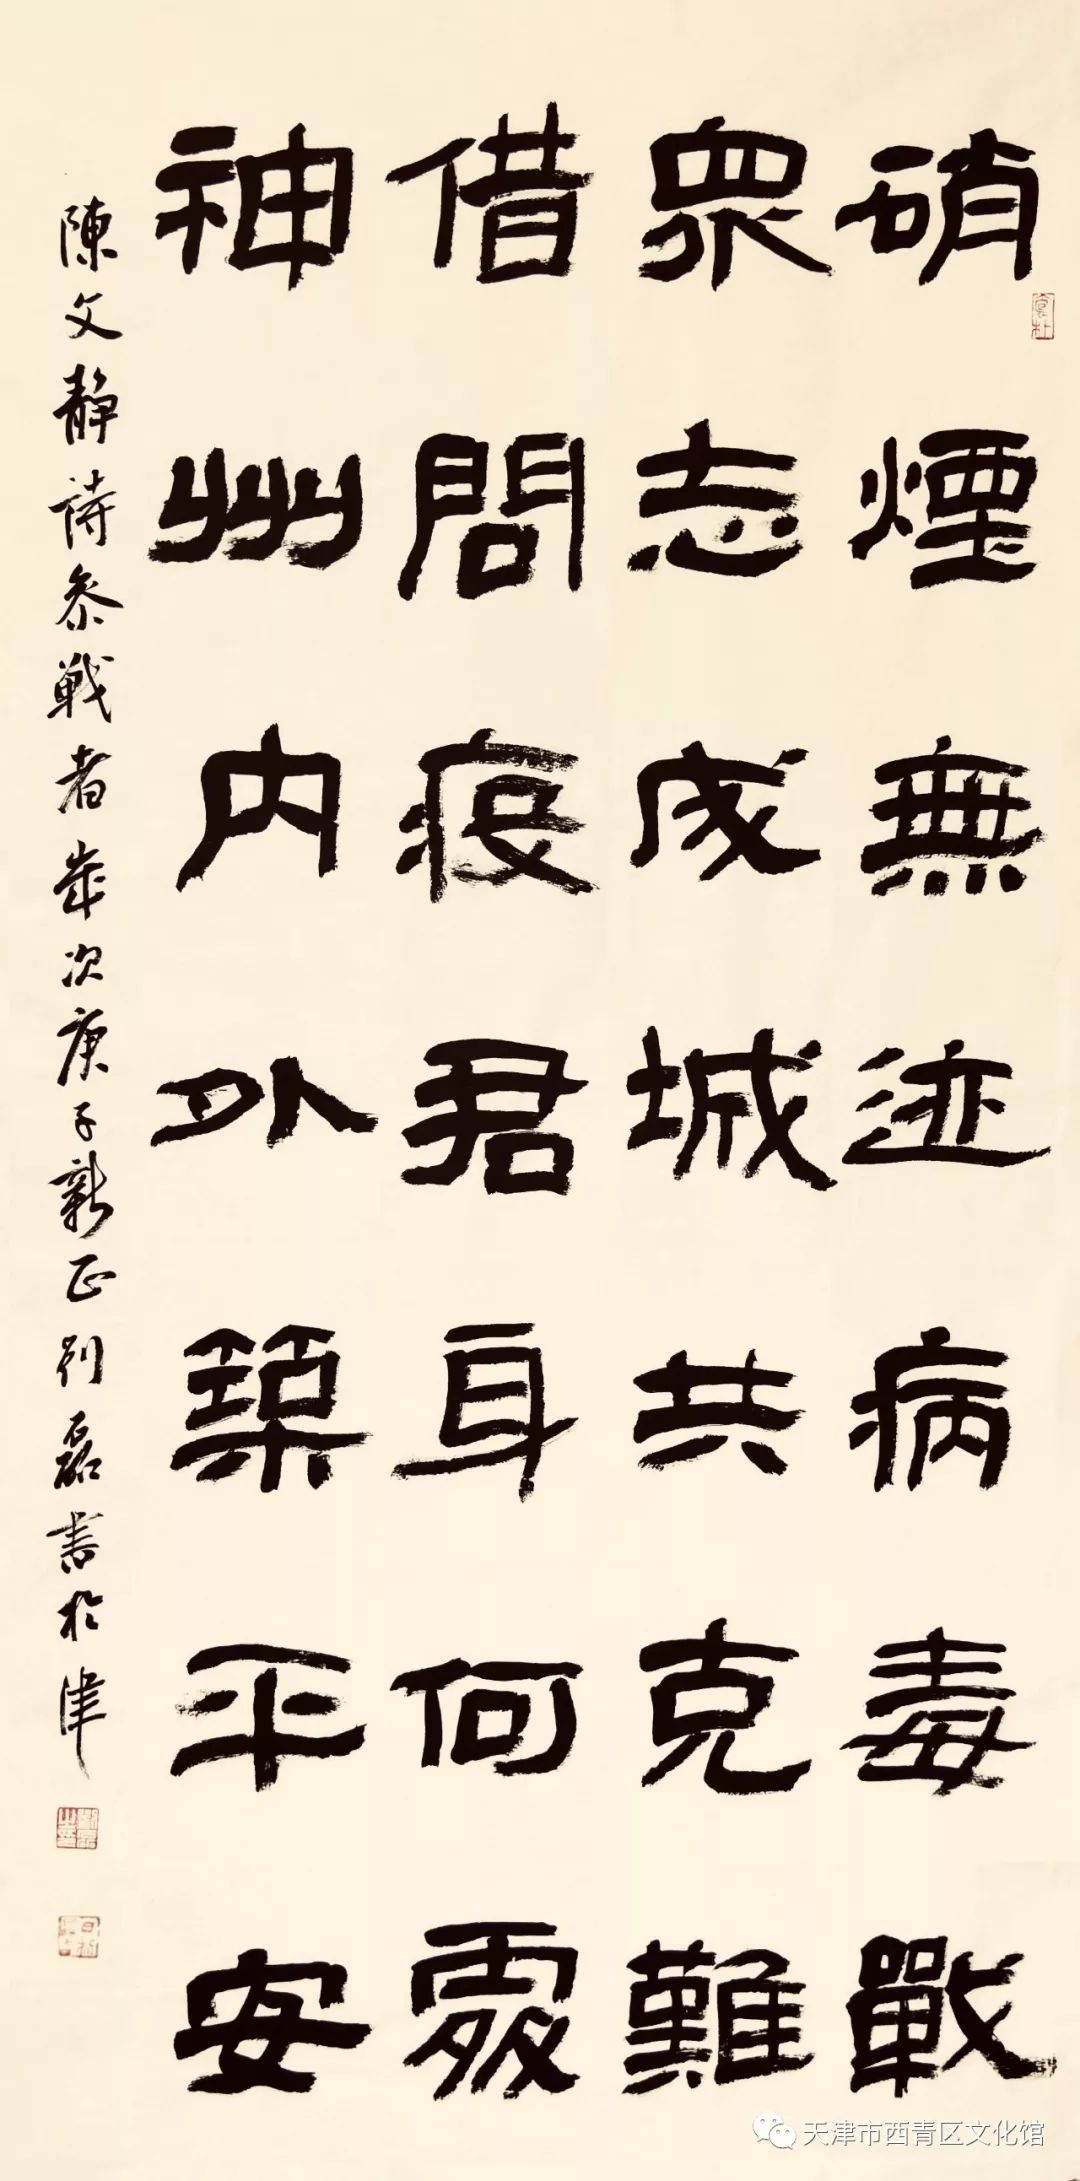 硝煙無迹病毒戰
眾志成城共克難
借問疫君身何處
神州內外築平安
陳文靜詩參戰者歲次庚子新正刘磊書於津
天津市西青区文化馆